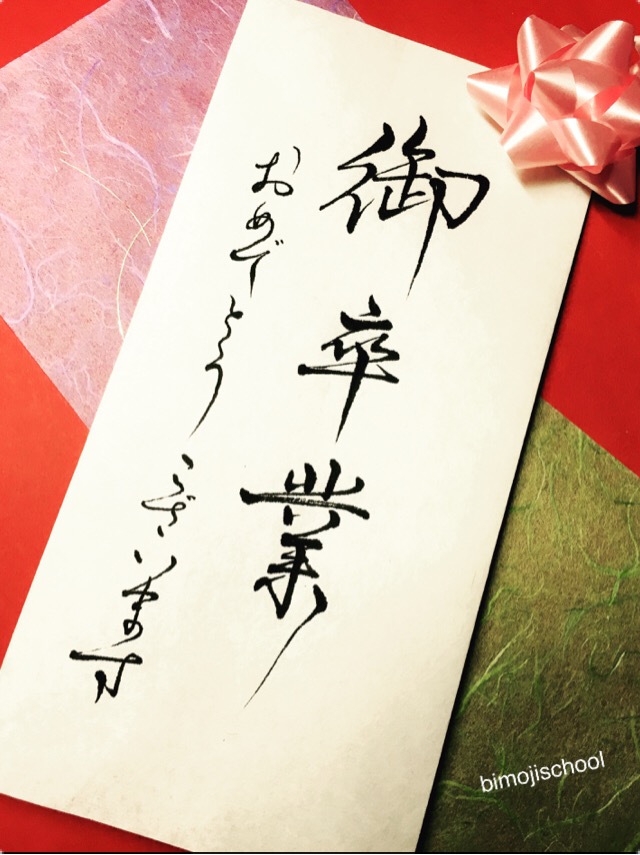 御卒業
おめでとうございます
bimojischool